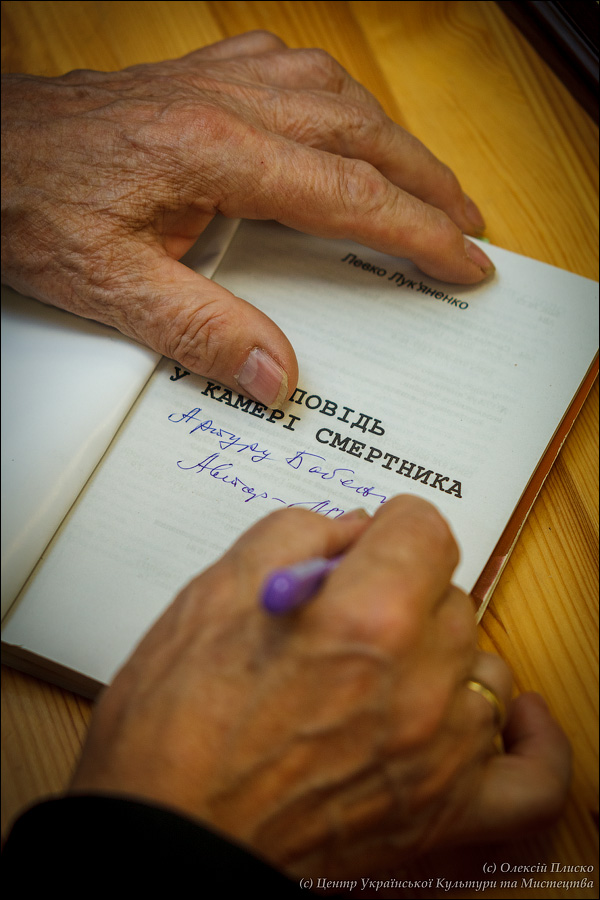 Левко Лук'яненко
ПОВІДЬ
У КАМЕРІ СМЕРТНИКА
Артуру
Автор-
(с) Олексій Плиско
(с) Центр Української Культури та Мистецтва